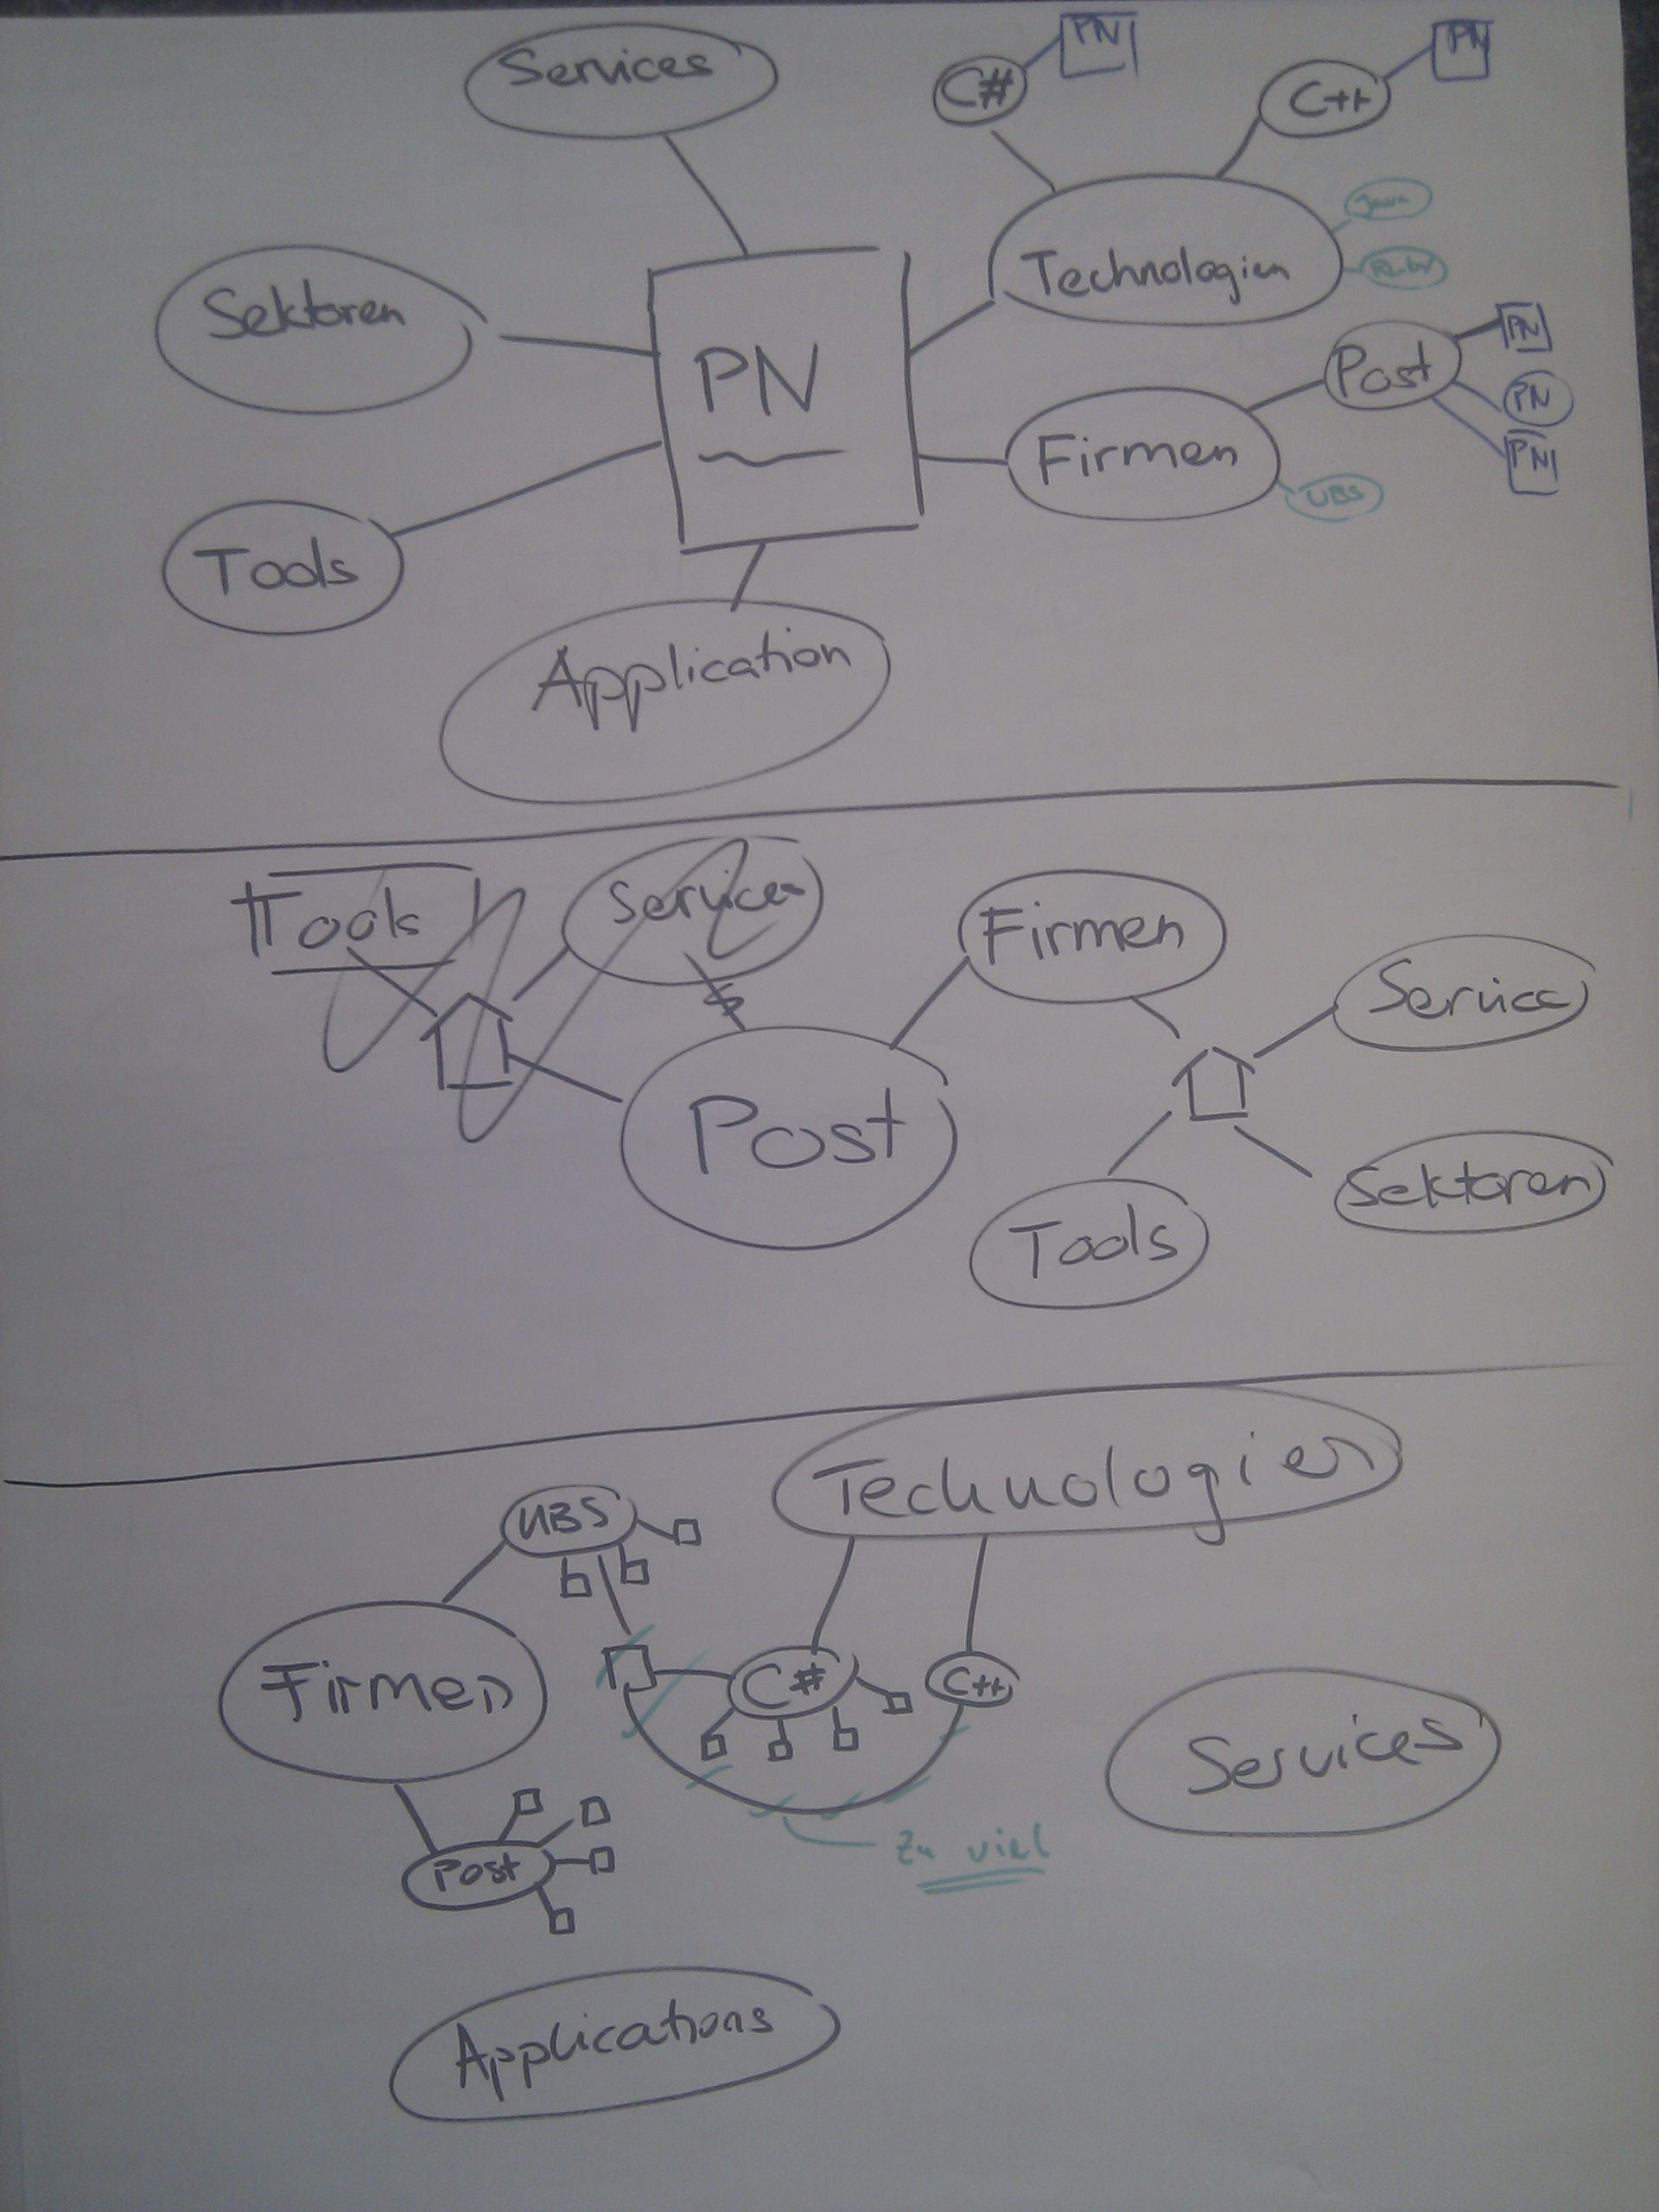 Services
C#
PN
C++
PN
Java
Technologien
Ruby
Sektoren
PN
Post
PN
PN
PN
Firmen
UBS
Tools
Application
Tools
Services
Firmen
Service
Post
Sektoren
Tools
Technologien
UBS
Firmen
C#
C++
Services
Zu viel
Post
Applications